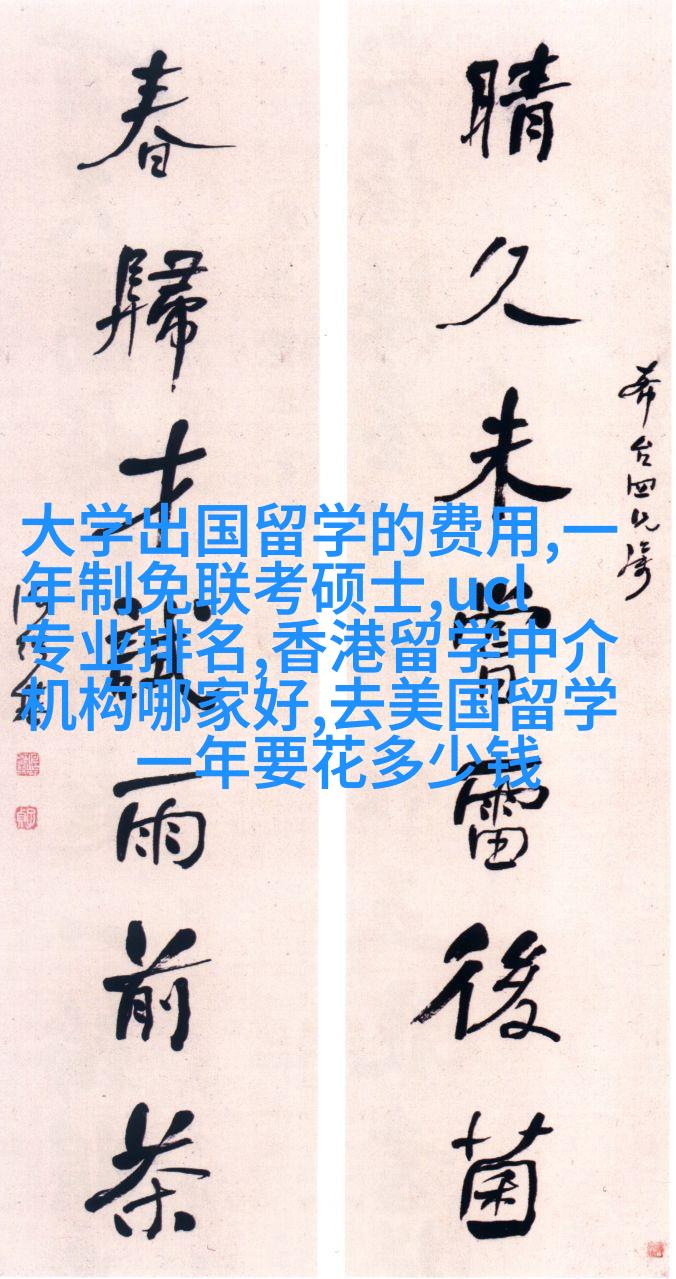 晴久未嘗雷後菌
春歸才試雨前茶
大学出国留学的费用,一
年制免联考硕士,ucl
专业排名,香港留学中介
机构哪家好,去美国留学
一年要花多少钱